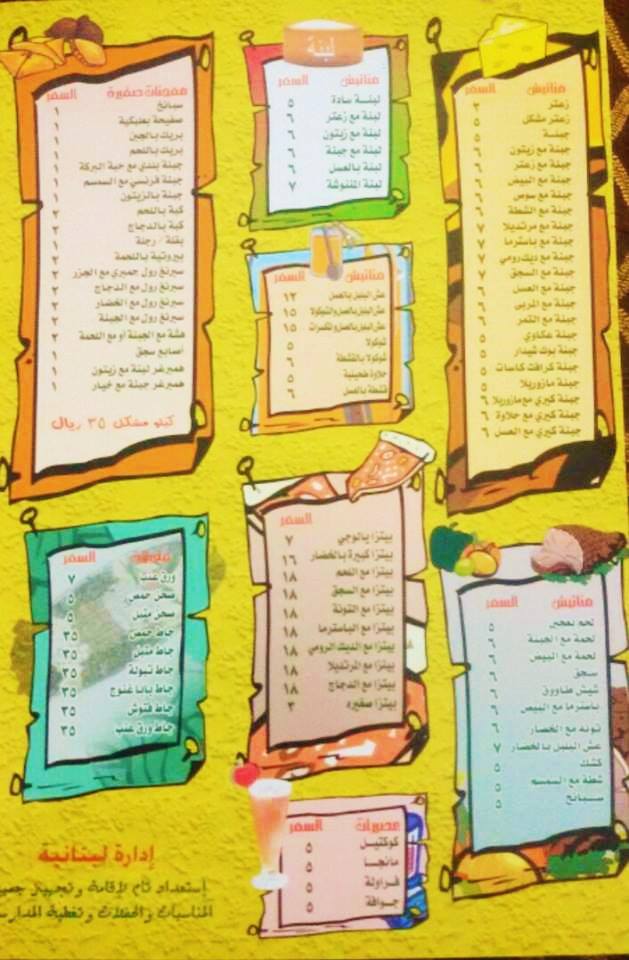 مناتيش السعر
زعتر ٣
زعتر مشكل ٥
جبنة ٥
جبنة مع زيتون ٦
جبنة مع زعتر ٦
جبنة مع البيض ٦
جبنة مع سوس ٦
جبنة مع الشطة ٦
جبنة مع مرتديلا ٧
جبنة مع باسترما ٧
جبنة مع ديك رومي ٧
جبنة مع السجق ٧
جبنة مع العسل ٦
جبنة مع المربى ٦
جبنة مع التمر ٦
جبنة عكاوي ٥
جبنة بوك شيدار ٥
جبنة كرافت كاسات ٥
جبنة مازوريلا ٥
جبنة كيري مع مازوريلا ٦
جبنة كيري مع حلاوة ٦
جبنة كيري مع العسل ٦
لبنة
مناتيش السعر
لبنة سادة ٥
لبنة مع زعتر ٦
لبنة مع زيتون ٦
لبنة مع جبنة ٦
لبنة بالعسل ٦
لبنة المنتوشة ٧
مناتيش السعر
عش البلبل بالعسل ١٢
عش البلبل بالعسل والشوكولا ١٥
عش البلبل بالعسل والمكسرات ١٥
شوكولا ٥
شوكولا بالقشطة ٦
حلاوة طحينية ٥
قشطة بالعسل ٦
معجنات صغيرة السعر
سبانخ ١
صفيحة بعلبكية ١
بريك بالجبن ١
بريك باللحم ١
جبنة بلدي مع حبة البركة ١
جبنة فرنسي مع السمسم ١
جبنة بالزيتون ١
كبة باللحم ٢
كبة بالدجاج ٢
بقلة / رجلة ١
بيروتية باللحمة ٢
سبرنغ رول جمبري مع الجزر ٢
سبرنغ رول مع الدجاج ٢
سبرنغ رول مع الخضار ٢
سبرنغ رول مع الجبنة ٢
هشة مع الجبنة أو مع اللحمة ٢
أصابع سجق ١
همبرغر لبنة مع زيتون ١
همبرغر جبنة مع خيار ١
كيلو مشكل ٣٥ ريال
السعر
بيتزا يالوجي ٧
بيتزا كبيرة بالخضار ١٦
بيتزا مع اللحم ١٨
بيتزا مع السجق ١٨
بيتزا مع التونة ١٨
بيتزا مع الباسترما ١٨
بيتزا مع الديك الرومي ١٨
بيتزا مع المرتديلا ١٨
بيتزا مع الدجاج ١٨
بيتزا صغيره ٣
مناتيش السعر
لحم بعجين ٥
لحمة مع الجبنة ٦
لحمة مع البيض ٦
سجق ٦
شيش طاووق ٦
باسترما مع البيض ٦
تونه مع الخضار ٦
عش البلبل بالخضار ٧
كشك ٥
شطة مع السمسم ٥
سبانخ ٥
السعر
ورق عنب ٧
صحن حمص ٥
صحن متبل ٥
جاط حمص ٣٥
جاط متبل ٣٥
جاط تبولة ٣٥
جاط بابا غنوج ٣٥
جاط فتوش ٣٥
جاط ورق عنب ٣٥
عصيرات السعر
كوكتيل ٥
مانجا ٥
فراولة ٥
جوافة ٥
إدارة لبنانية
إستعداد تام لإقامة و تجهيز جميع
المناسبات و الحفلات و تغطية المدارس